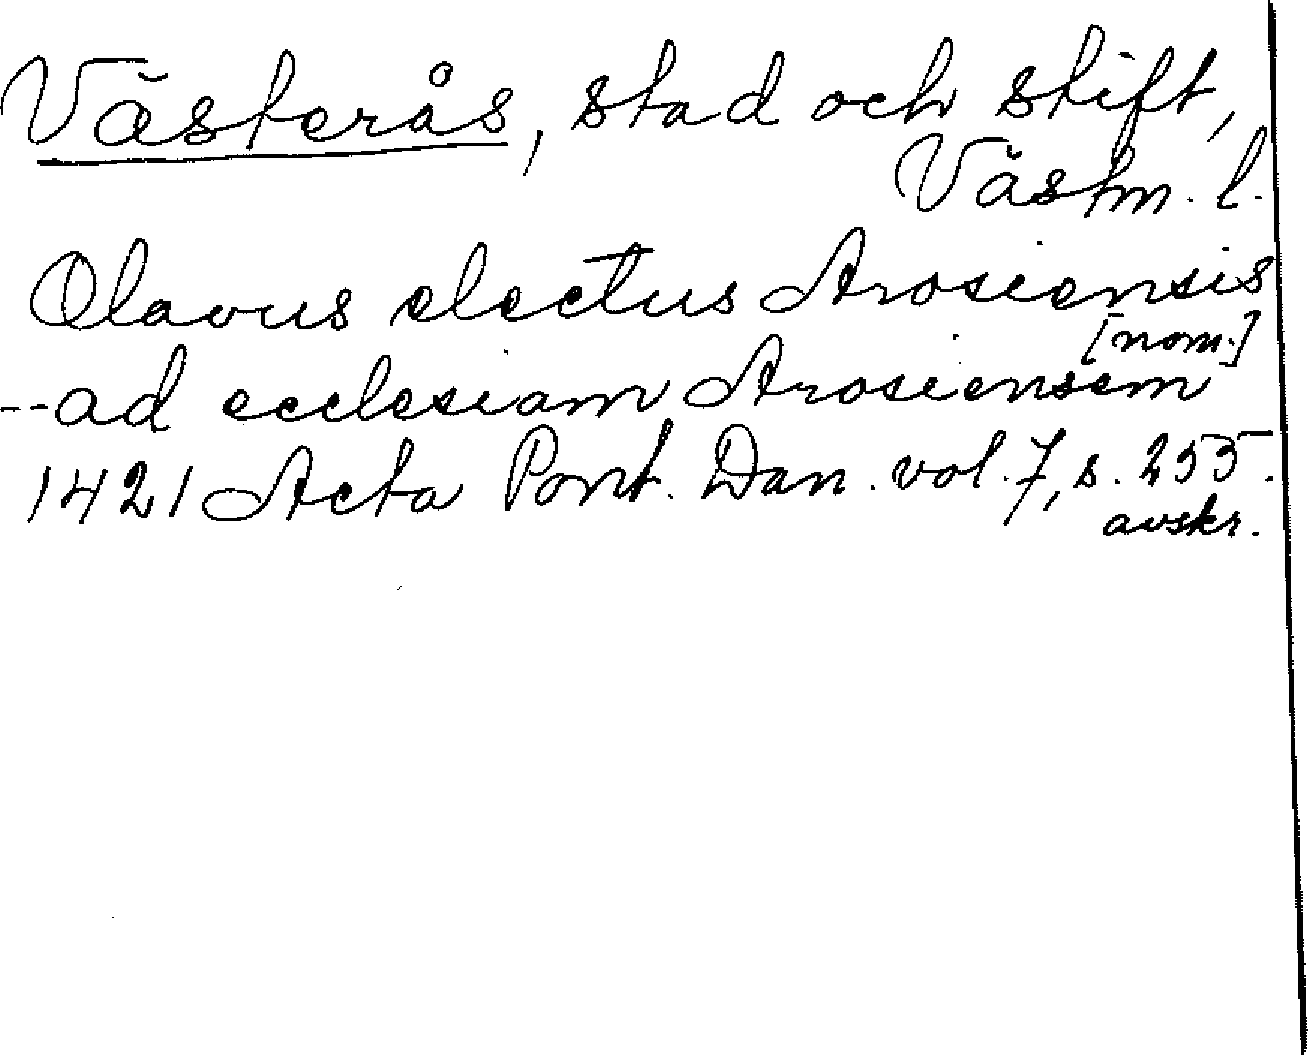 Västerås, stad och stift,
Västm. l.
Olavus electus Arosiensis
[nom.]
-- ad ecclesiam Arosiensem
1421 Acta Pont. Dan. vol. 7, s. 255.
avskr.